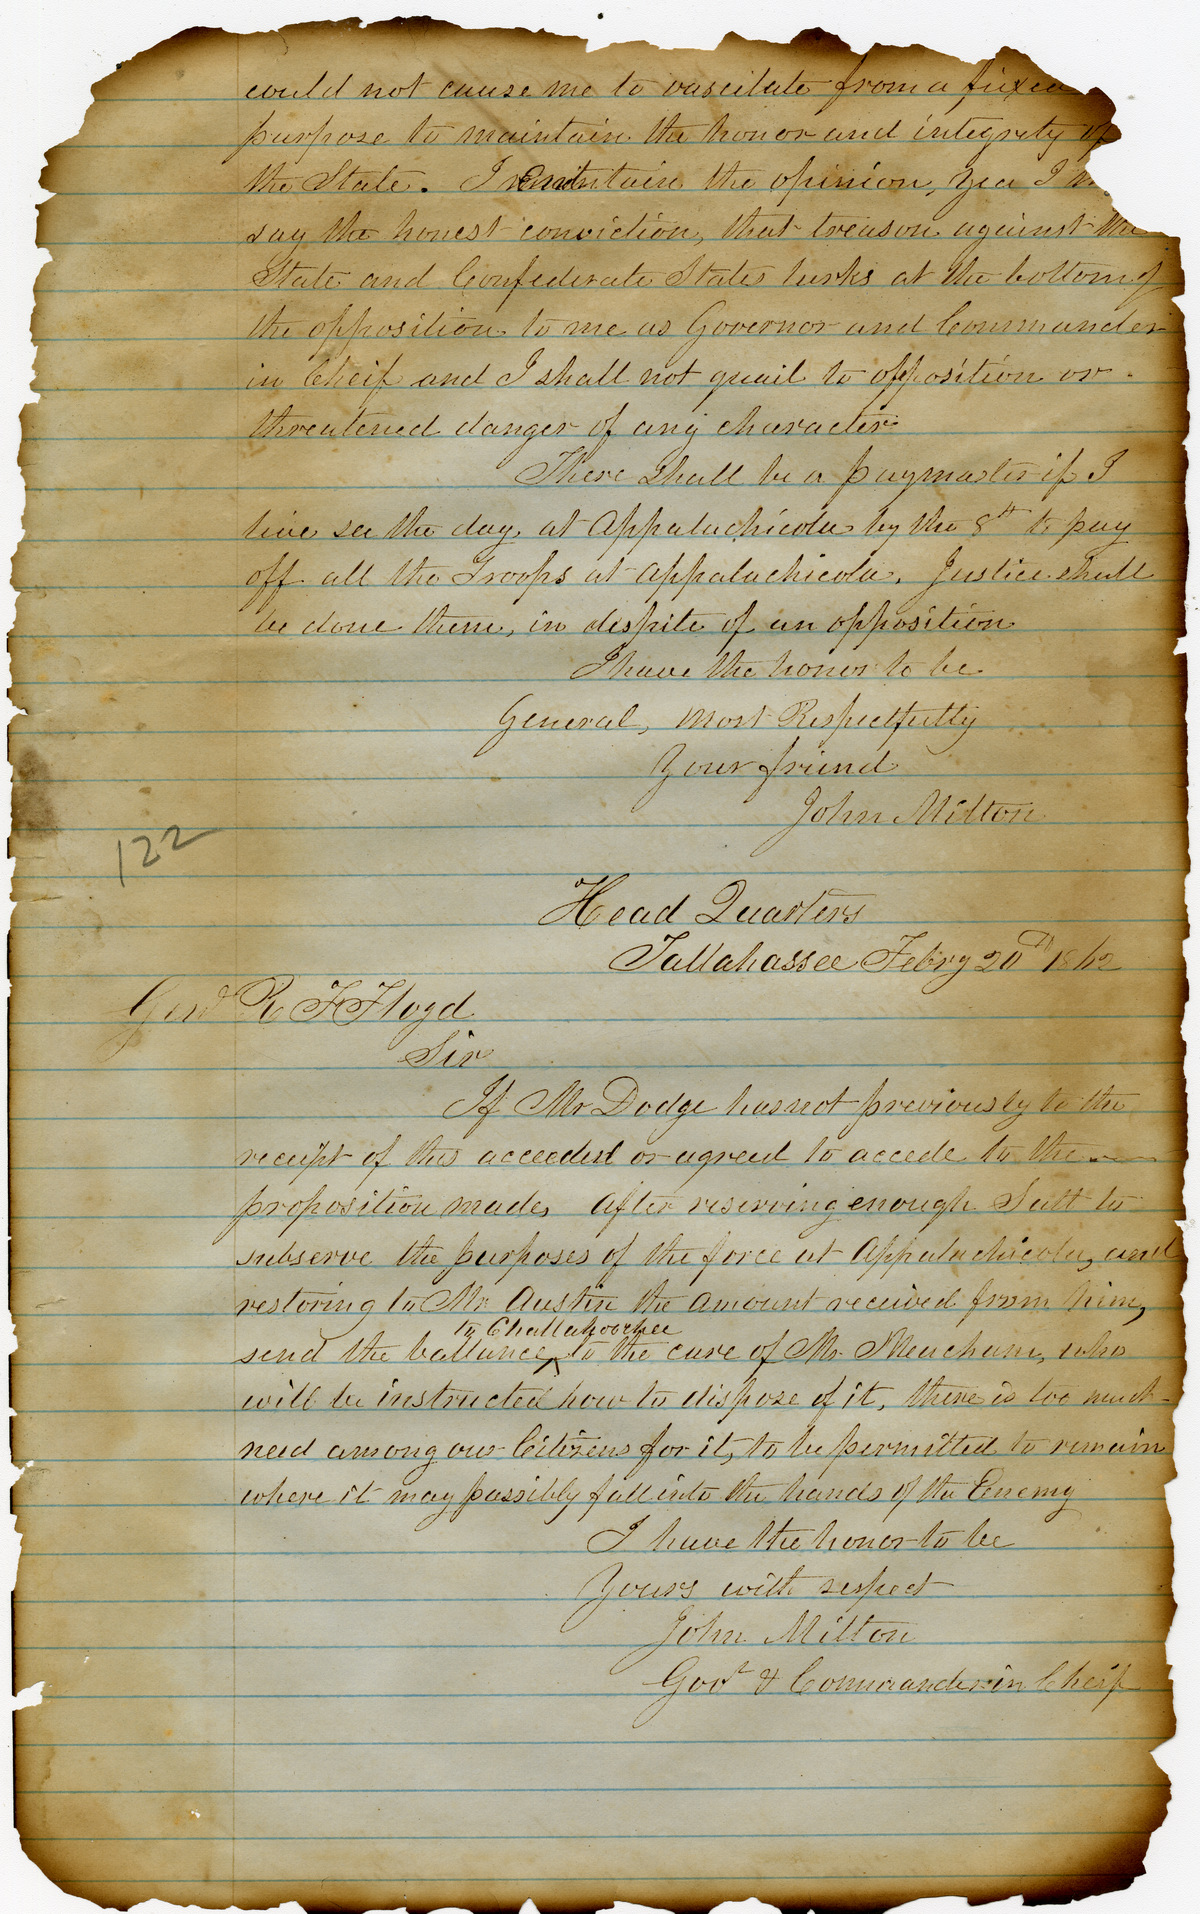 could not cause me to vascilate from a fixed
purpose to maintain the honor and integrity of
the State. I entertain the opinion, yea I
say the honest conviction, that treason against the
State and Confederate States lurks at the bottom of
the opposition to me as Governor and Commander
in Cheif and I shall not quail to opposition or
threatened danger of any character
There shall be a paymaster if I
live see the day, at Appalachicola by the 8th to pay
off all the Troops at Appalachicola. Justice shall
be done them, in dispite of an opposition
I have the honor to be
General, Most Respectfully
Your friend
John Milton
122
Head Quarters
Tallahassee Febry 20th 1862
Genl R F Floyd
Sir
If Mr Dodge has not previously to the
receipt of this acceeded or agreed to accede to the
proposition made, After reserving enough Salt to
subserve the purposes of the force at Appalachicola, and
restoring to Mr Austin the amount received from him,
to Chattahoochee
send the ballance ^ to the care of Mr. Meacham, who
will be instructed how to dispose of it, there is too much
need among our Citizens for it, to be permitted to remain
where it may possibly fall into the hands of the Enemy
I have the honor to be
Yours with respect
John Milton
Govr & Commander in Cheif